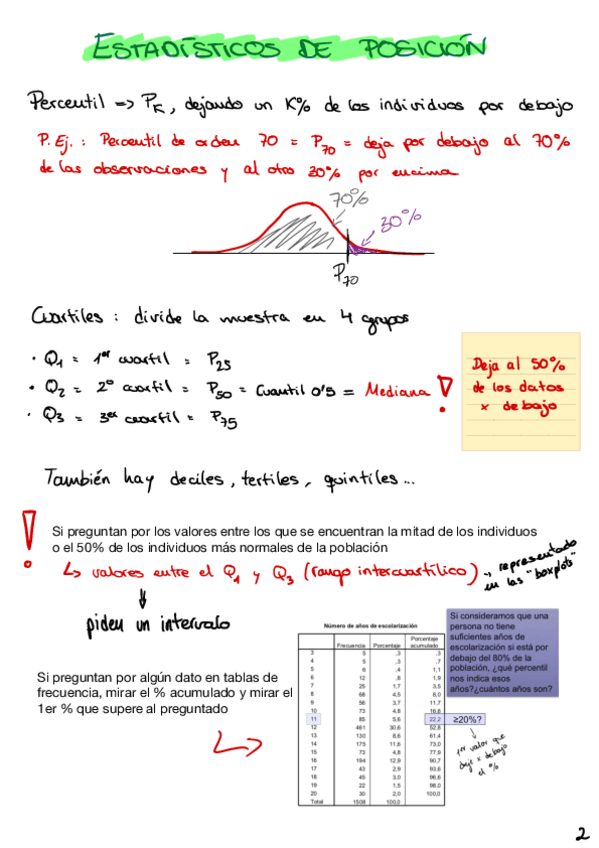 ESTADÍSTICOS DE POSICIÓN
Percentil => PK, dejando un K% de los individuos por debajo
P. Ej.: Percentil de orden 70 = P70 = deja por debajo al 70%
de las observaciones y al otro 30% por encima
70%
30%
P70
Cuartiles: divide la muestra en 4 grupos
· Q1 = 1er cuartil = P25
· Q2 = 2º cuartil = P50 = Cuantil 0'5 = Mediana !
· Q3 = 3er cuartil = P75
Deja al 50%
de los datos
x debajo
También hay deciles, tertiles, quintiles...
! Si preguntan por los valores entre los que se encuentran la mitad de los individuos
o el 50% de los individuos más normales de la población
↳ valores entre el Q1 y Q3 (rango intercuartílico) → representado
en los "boxplots"
piden un intervalo
Si preguntan por algún dato en tablas de
frecuencia, mirar el % acumulado y mirar el
1er % que supere al preguntado
Número de años de escolarización
Frecuencia Porcentaje Porcentaje acumulado
3 5 ,3 ,3
4 5 ,3 ,7
5 6 ,4 1,1
6 12 ,8 1,9
7 25 1,7 3,5
8 68 4,5 8,0
9 56 3,7 11,7
10 73 4,8 16,6
11 85 5,6 22,2
12 461 30,6 52,8
13 130 8,6 61,4
14 175 11,6 73,0
15 73 4,8 77,9
16 194 12,9 90,7
17 43 2,9 93,6
18 45 3,0 96,6
19 22 1,5 98,0
20 30 2,0 100,0
Total 1508 100,0
Si consideramos que una
persona no tiene
suficientes años de
escolarización si está por
debajo del 80% de la
población, ¿qué percentil
nos indica esos
años?¿cuántos años son?
≥20%?
1er valor que
deje x debajo
el %
2